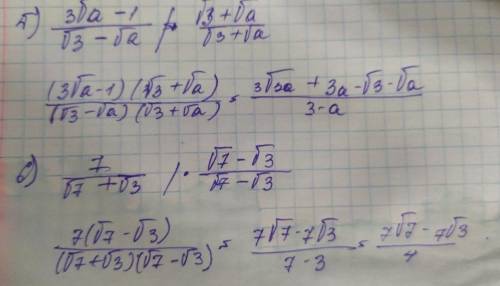 б) (3√a - 1)/(√3 - √a) /· (√3 + √a)/(√3 + √a)
(3√a - 1)(√3 + √a)/(√3 - √a)(√3 + √a) = (3√3a + 3a - √3 - √a)/(3 - a)
в) 7/(√7 + √3) /· (√7 - √3)/(√7 - √3)
7(√7 - √3)/(√7 + √3)(√7 - √3) = (7√7 - 7√3)/(7 - 3) = (7√7 - 7√3)/4